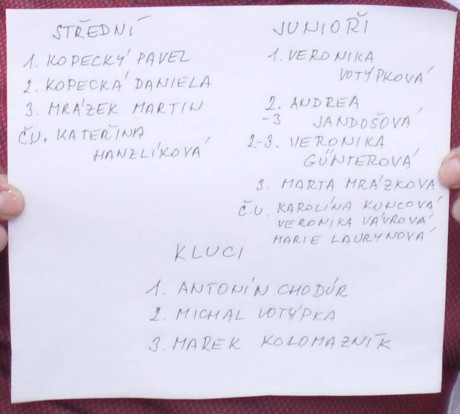 STŘEDNÍ
1. KOPECKÝ PAVEL
2. KOPECKÁ DANIELA
3. MRÁZEK MARTIN
Č.U. KATEŘINA
HANZLÍKOVÁ
JUNIOŘI
1. VERONIKA
VOTÝPKOVÁ
2. ANDREA
-3 JANDOŠOVÁ
2-3. VERONIKA
GÜNTEROVÁ
3. MARTA MRÁZKOVÁ
Č.U. KAROLÍNA KUNCOVÁ
VERONIKA VÁVROVÁ
MARIE LAURYNOVÁ
KLUCI
1. ANTONÍN CHODÚR
2. MICHAL VOTÝPKA
3. MAREK KOLOMAZNÍK